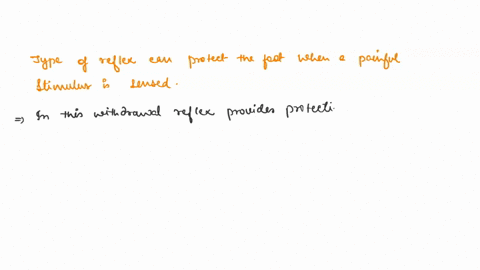 Type of reflex can protect the foot when a painful
stimulus is sensed.
⇒ In this withdrawal reflex provides protecti